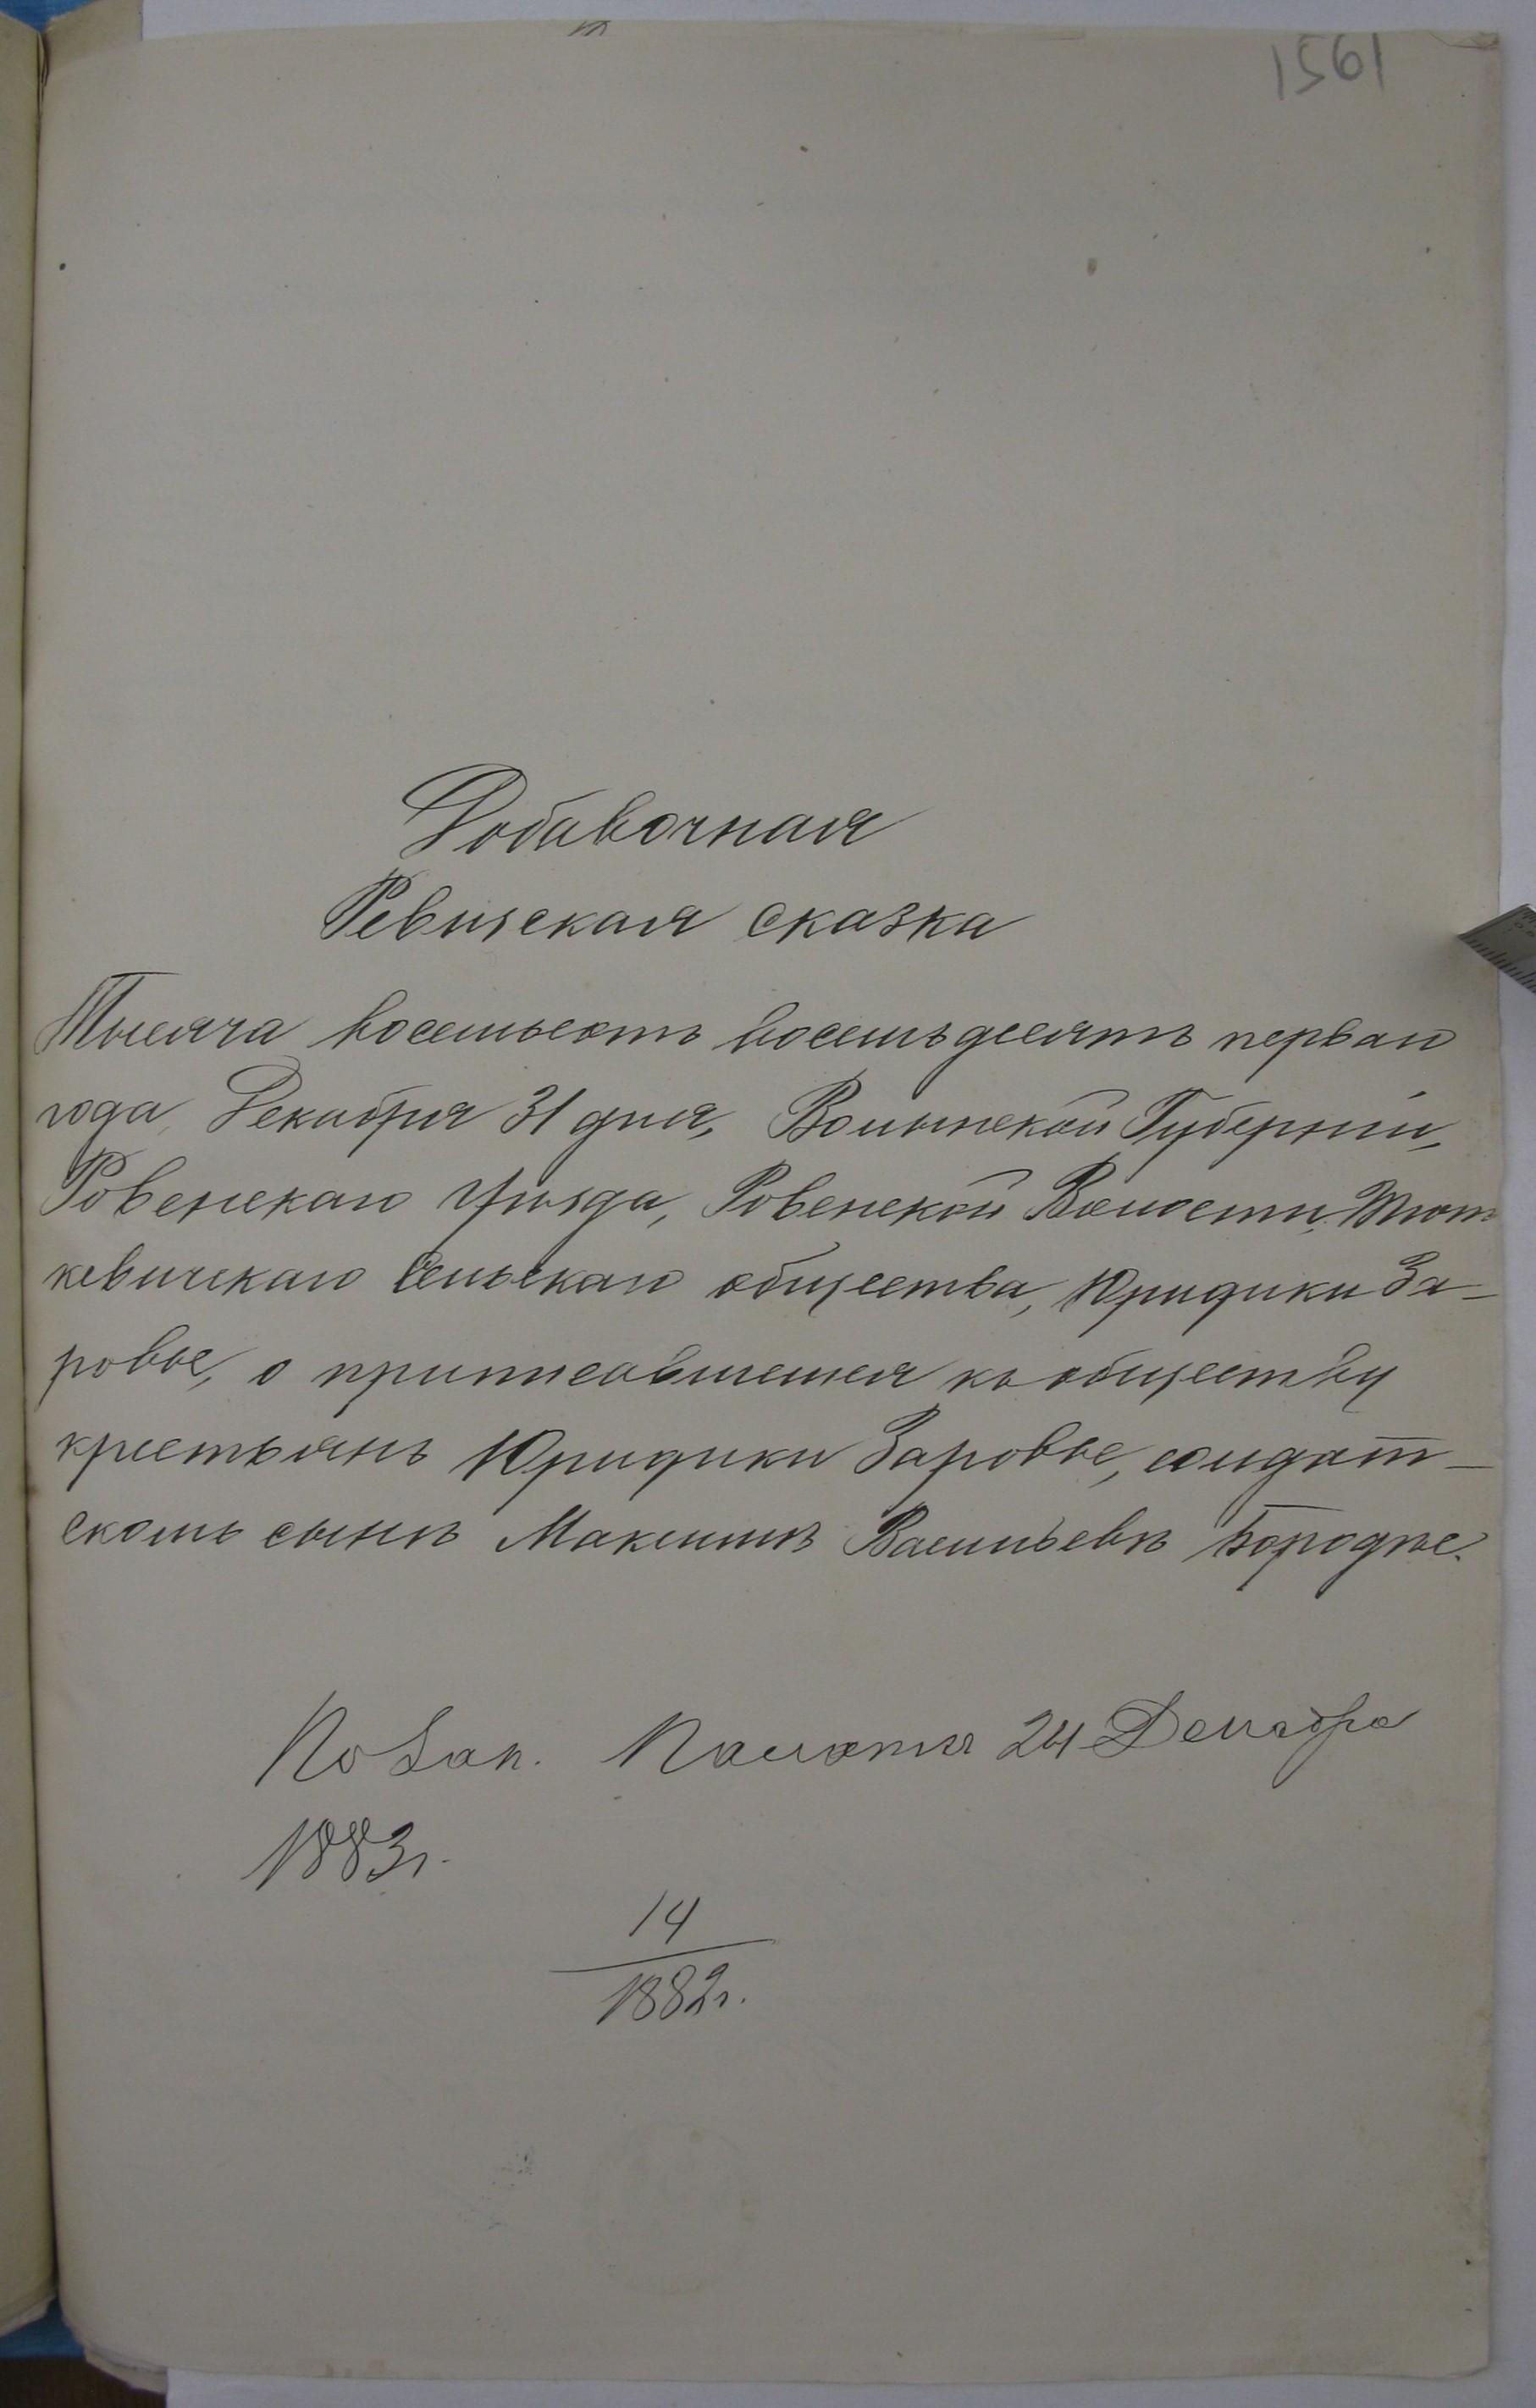 1561
Добавочная
Ревизская сказка
Тысяча восемьсотъ восемьдесятъ перваго
года, Декабря 31 дня, Волынской Губерніи,
Ровенскаго Уѣзда, Ровенской Волости, Тют
кевичскаго Сельскаго общества, Юридики За-
ровье, о приписавшемся къ обществу
крестьянъ Юридики Заровье, солдат-
скомъ сынѣ Максимѣ Васильевѣ Бородѣе.
По Зак. Палаты 24 Декабря
1883г.
14
1882г.